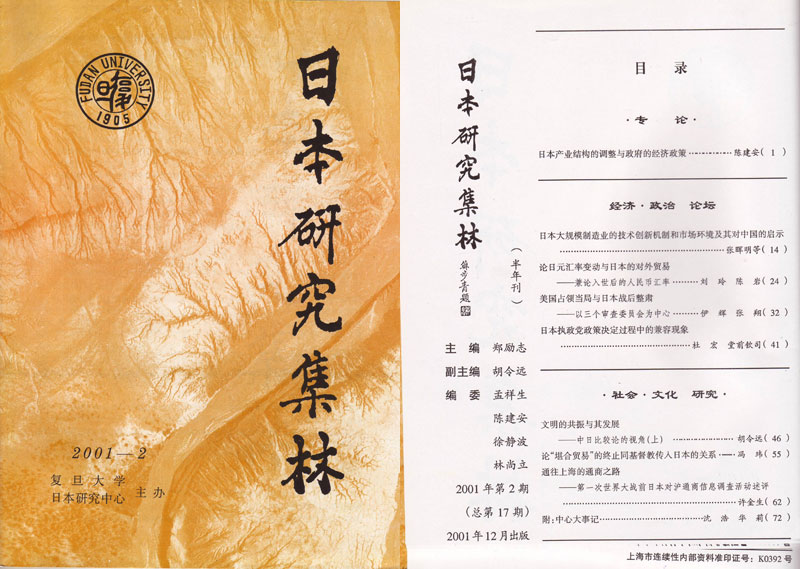 FUDAN UNIVERSITY
1905
日本研究集林
2001—2
复旦大学
日本研究中心
主办
日本研究集林
(半年刊)
苏步青题
主编 郑励志
副主编 胡令远
编委 孟祥生
陈建安
徐静波
林尚立
2001年第2期
(总第17期)
2001年12月出版
目录
·专论·
日本产业结构的调整与政府的经济政策 ………… 陈建安(1)
经济·政治 论坛
日本大规模制造业的技术创新机制和市场环境及其对中国的启示
………… 张晖明等(14)
论日元汇率变动与日本的对外贸易
——兼论入世后的人民币汇率 ……… 刘玲 陈岩(24)
美国占领当局与日本战后整肃
——以三个审查委员会为中心 ……… 伊辉 张翔(32)
日本执政党政策决定过程中的兼容现象
………… 杜宏 堂前钦司(41)
·社会·文化 研究·
文明的共振与其发展
——中日比较论的视角(上) ………… 胡令远(46)
论“堪合贸易”的终止同基督教传入日本的关系 …… 冯玮(55)
通往上海的通商之路
——第一次世界大战前日本对沪通商信息调查活动述评
………… 许金生(62)
附:中心大事记 ………… 沈浩 华莉(72)
上海市连续性内部资料准印证号:K0392号